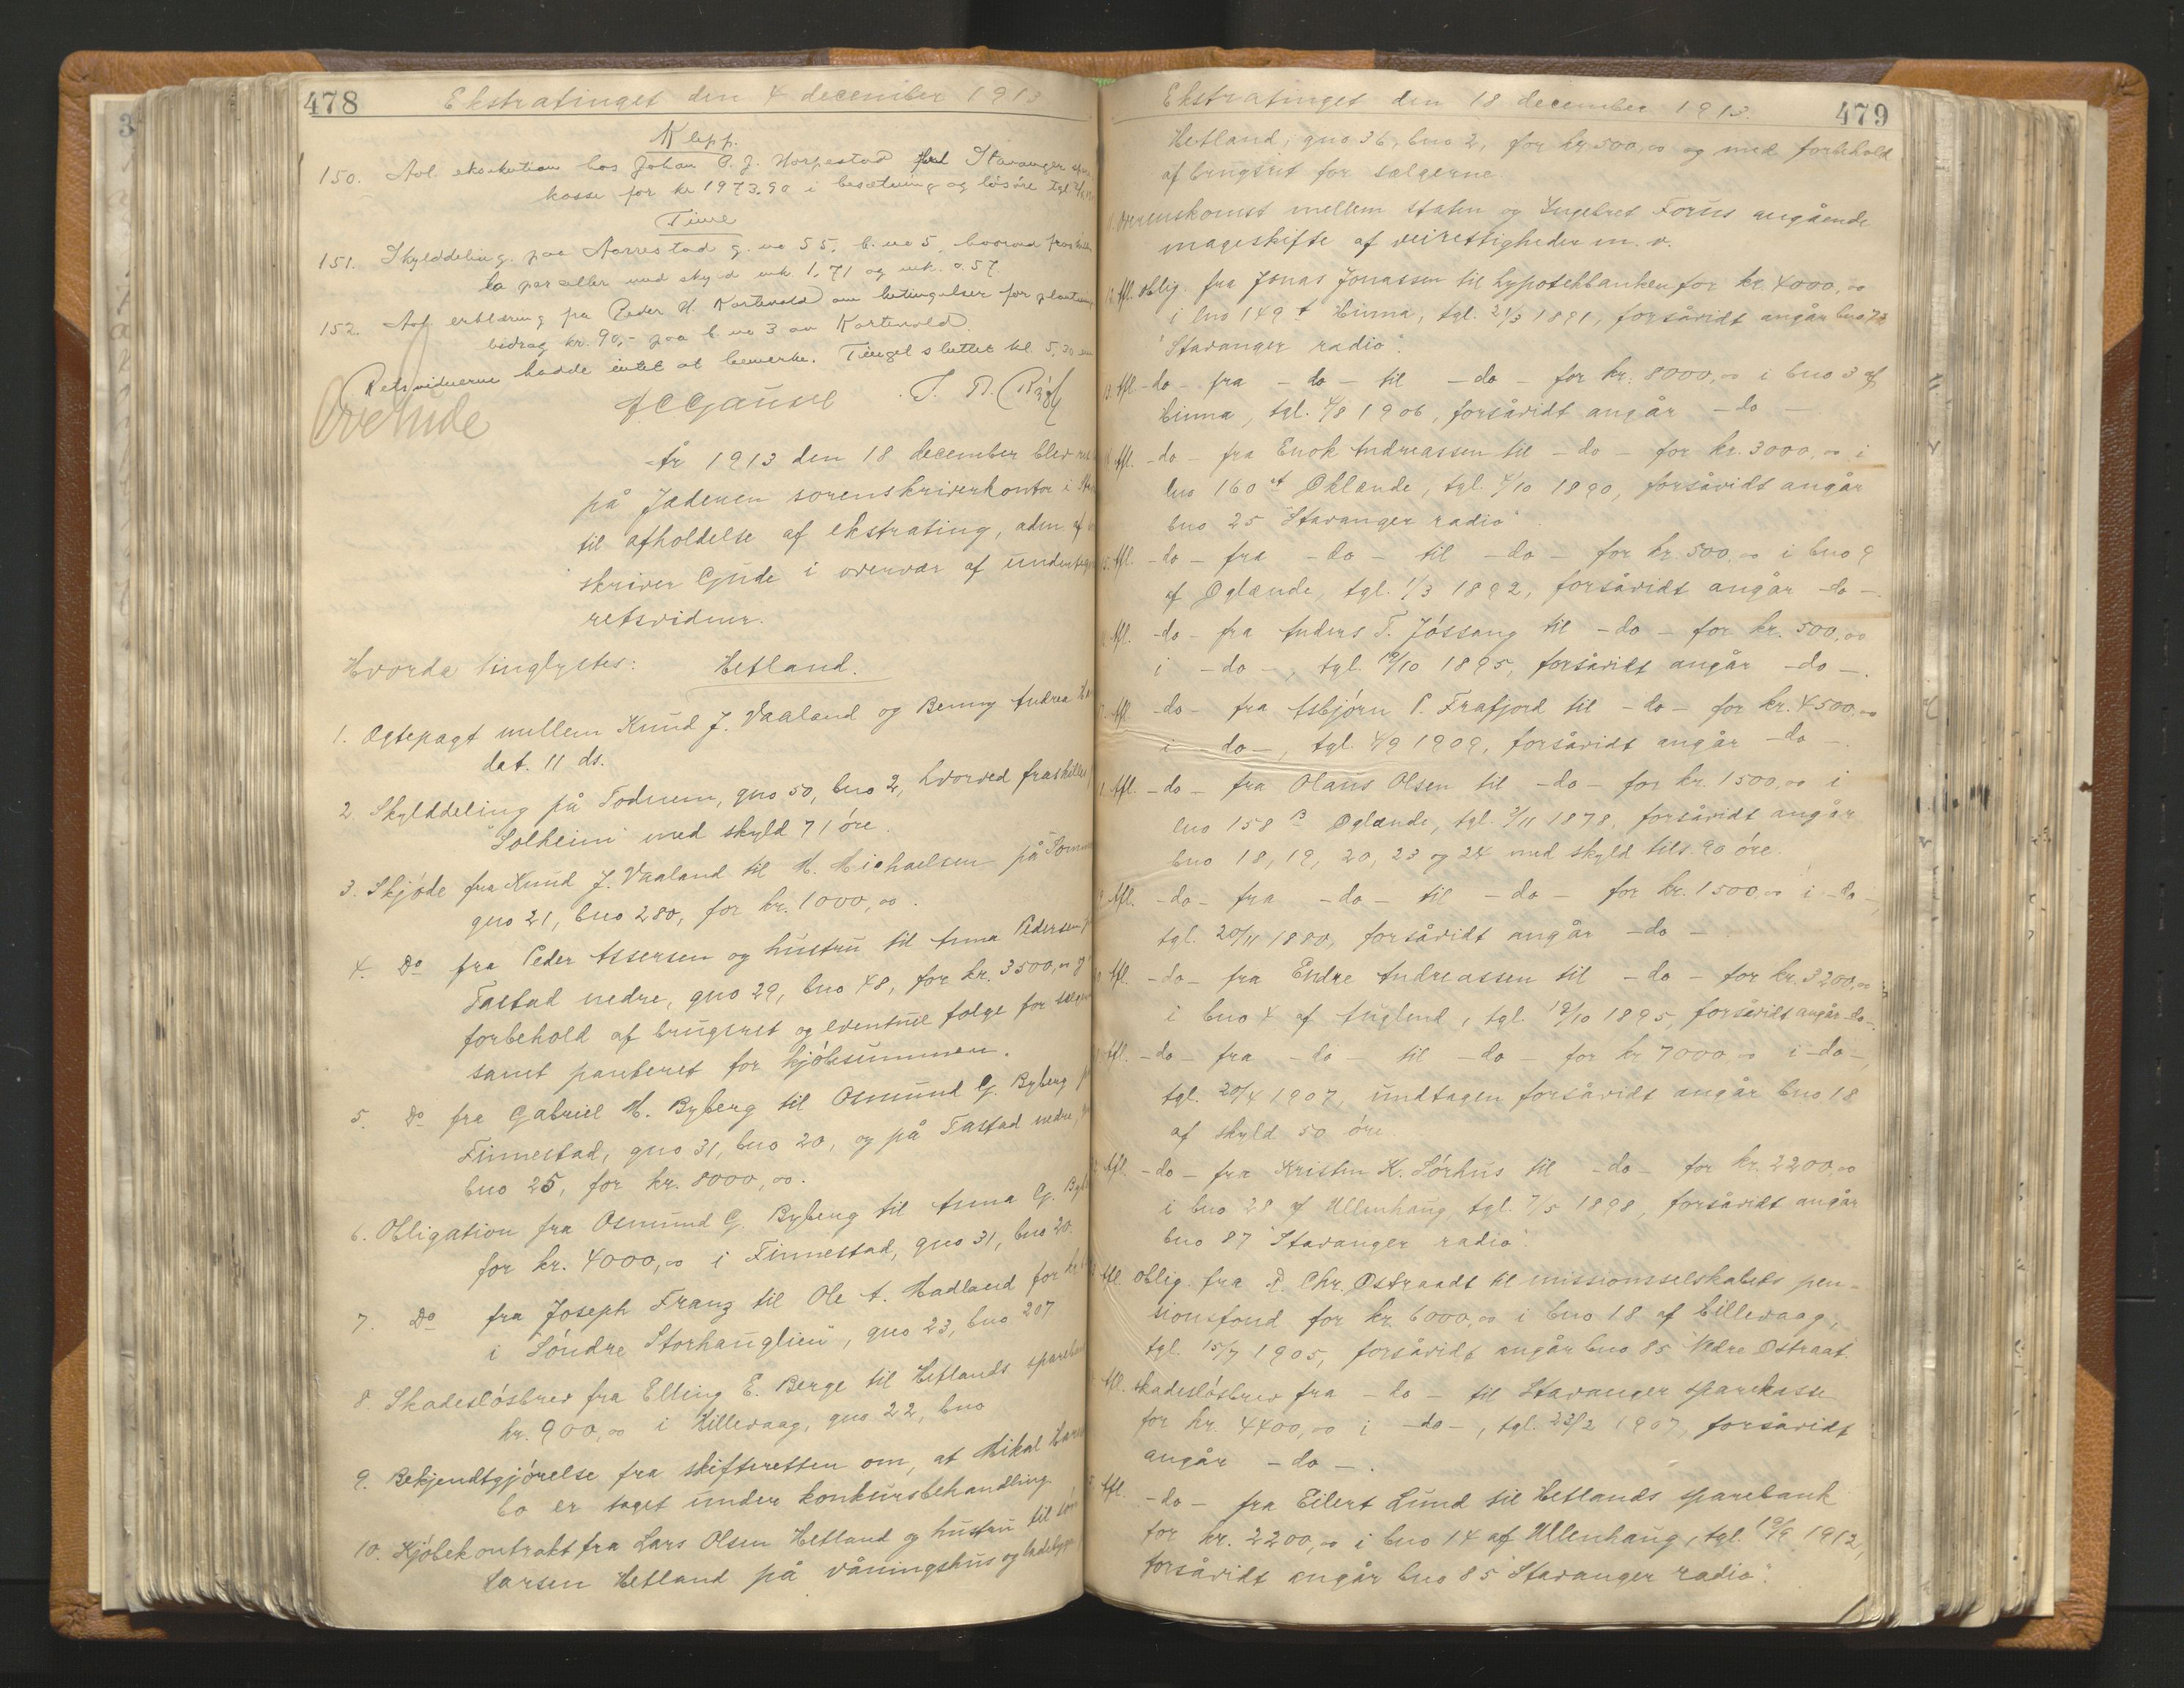 478
Ekstratinget den 4 december 1913
Klepp.
150. Avl. eksekution hos Johan P. J. Horpestad Stavanger
kasse for kr 1973.90 i besætning og løsøre tgl.
Time
151. Skylddeling paa Aarrestad g. no 55, b. no 5, hvorved
to parceller med skyld mk. 1,71 og mk. 0.57
152. Avl. erklæring fra Peder H. Kartevold om betingelser for
bidrag kr. 90,- paa b no 3 av Kartevold.
Retsvidnerne hadde intet at bemerke. Tinget sluttet kl. 5,30
År 1913 den 18 december blev
på Jæderen sorenskriverkontor i
til afholdelse af ekstrating, adm. af
skriver Gude i overvær af
retsvidner.
Hvorda tinglystes: Hetland.
1. Ægtepagt mellem Knud J. Vaaland og Benny Andrea
dat. 11 ds.
2. Skylddeling på Todnem, gno 50, bno 2, hvorved fraskilles
"Solheim" med skyld 71 øre.
3. Skjøde fra Knud J. Vaaland til M. Michaelsen på
gno 21, bno 280, for kr. 1000,00.
4. Do fra Peder Assersen og hustru til Anna Pedersen
Tastad nedre, gno 29, bno 48, for kr. 3500,00
forbehold af brugsret og eventuel følge for
samt panteret for kjøbesummen.
5. Do fra Gabriel H. Byberg til Osmund G. Byberg
Finnestad, gno 31, bno 20, og på Tastad nedre,
bno 25, for kr. 8000,00.
6. Obligation fra Osmund G. Byberg til Anna G.
for kr. 4000,00 i Finnestad, gno 31, bno 20.
7. Do fra Joseph Franz til Ole A. Madland for
i "Søndre Storhauglien", gno 23, bno 207
8. Skadesløsbrev fra Elling E. Berge til Hetlands
kr. 900,00 i Hillevaag, gno 22, bno
9. Bekjendtgjørelse fra skifteretten om, at Mikal
bo er taget under konkursbehandling.
10. Kjøbekontrakt fra Lars Olsen Hetland og hustru til
Larsen Hetland på våningshus og
Ekstratinget den 18 december 1913.
479
Hetland, gno 36, bno 2, for kr 500,00 og med forbehold
af brugsret for sælgerne.
Overenskomst mellem staten og Ingebret Forus angående
mageskifte af veirettigheder m. v.
Afl. oblig. fra Jonas Jonassen til hypothekbanken for kr. 4000,00
i lno 149 Hinna, tgl. 21/3 1891, forsåvidt angår bno 72
"Stavanger radio".
Afl. -do- fra -do- til -do- for kr. 8000,00 i bno 3 af
Hinna, tgl. 4/8 1906, forsåvidt angår -do-
Afl. -do- fra Enok Andreassen til -do- for kr. 3000,00 i
lno 160 Øklænde, tgl. 4/10 1890, forsåvidt angår
bno 25 "Stavanger radio"
Afl. -do- fra -do- til -do- for kr 500,00 i bno 9
af Øglænde, tgl. 1/3 1892, forsåvidt angår -do-.
Afl. -do- fra Anders T. Jøssang til -do- for kr. 500,00
i -do-, tgl. 19/10 1895, forsåvidt angår -do-.
Afl. -do- fra Asbjørn P. Frafjord til -do- for kr. 4500,00
i -do-, tgl. 4/9 1909, forsåvidt angår -do-.
Afl. -do- fra Olaus Olsen til -do- for kr. 1500,00 i
lno 158 Øglænde, tgl. 2/11 1878, forsåvidt angår
bno 18, 19, 20, 23 og 24 med skyld tils. 90 øre.
Afl. -do- fra -do- til -do- for kr. 1500,00 i -do-,
tgl. 20/11 1880, forsåvidt angår -do-
Afl. -do- fra Endre Andreassen til -do- for kr. 3200,00
i bno 4 af Auglend, tgl. 19/10 1895, forsåvidt angår -do-.
Afl. -do- fra -do- til -do for kr 7000,00 i -do-,
tgl. 20/4 1907, undtagen forsåvidt angår bno 18
af skyld 50 øre.
Afl. -do- fra Kristen K. Sørhus til -do- for kr. 2200,00
i bno 28 af Ullenhaug, tgl. 7/5 1898, forsåvidt angår
bno 87 "Stavanger radio".
Afl. oblig. fra P. Chr. Østraadt til missionsselskabets pen-
sionsfond for kr. 6000,00 i bno 18 af Hillevaag,
tgl. 15/7 1905, forsåvidt angår bno 85 "Nedre Østraat".
Afl. skadesløsbrev fra -do- til Stavanger sparekasse
for kr. 4400,00 i -do-, tgl. 23/2 1907, forsåvidt
angår -do-.
Afl. -do- fra Eilert Lund til Hetlands sparebank
for kr. 2200,00 i bno 14 af Ullenhaug, tgl. 19/9 1912,
forsåvidt angår bno 85 "Stavanger radio".